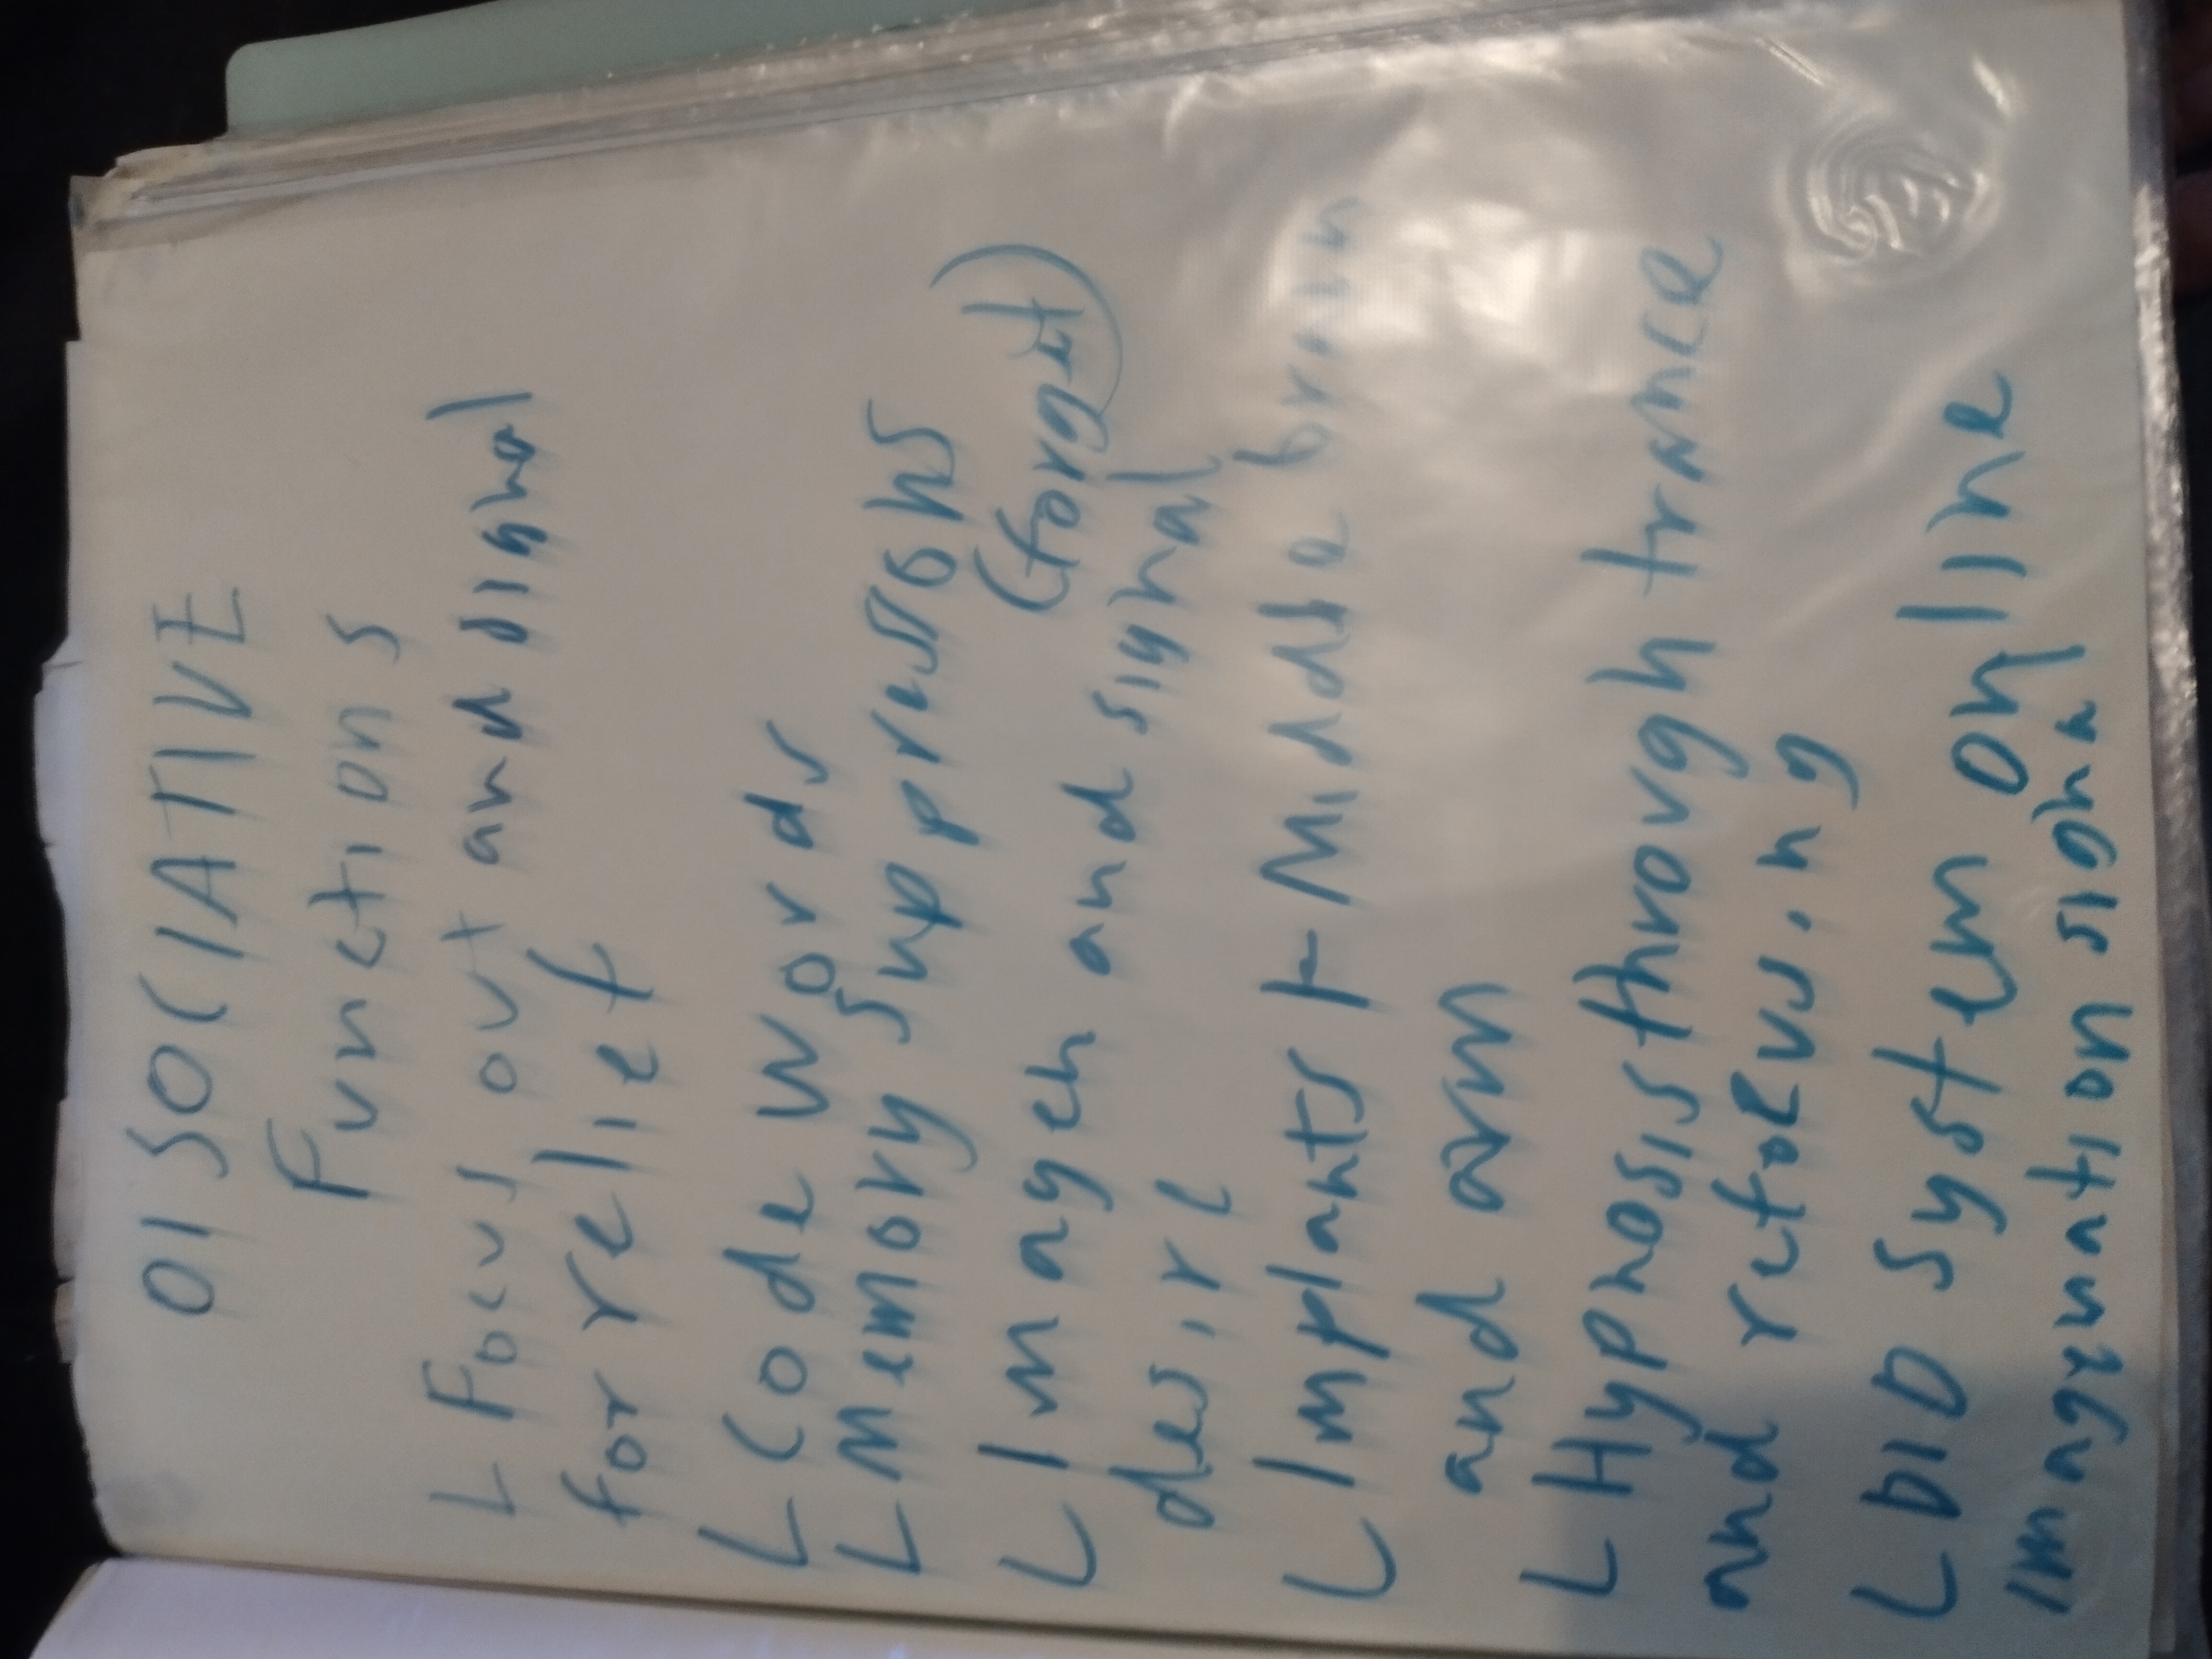 DISOCIATIVE
Functions
L Focus out and signal
for relief
L Code words
L Memory suppressons
(forGet)
L Imagen and signal
desire
L Implants + Middle
and am
L Hypnosis through trance
and
L DID System online